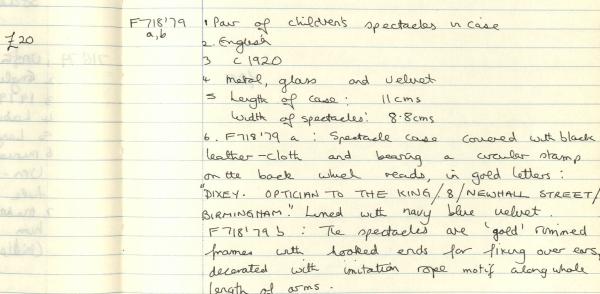 £20
F718'79
a,b
1 Pair of children's spectacles in case
2. English
3 c 1920
4 Metal, glass and velvet
5 Length of case: 11cms
Width of spectacles: 8.8cms
6. F718'79 a : Spectacle case covered with black
leather-cloth and bearing a circular stamp
on the back which reads, in gold letters:
"DIXEY. OPTICIAN TO THE KING/8/NEWHALL STREET/
BIRMINGHAM." Lined with navy blue velvet.
F718'79 b : The spectacles are 'gold' rimmed
frames with hooked ends for fixing over ears,
decorated with imitation rope motif along whole
length of arms.